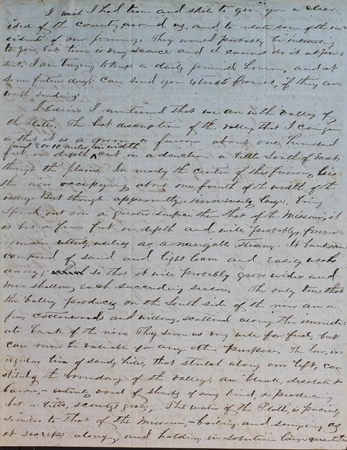 I wish I had time and skill to give you a clear
idea of the country around us, and to relate some of the in-
cidents of our journey. They would possibly be interesting
to you, but time is very scarce and it cannot be
I am trying to keep a daily journal however, and at
some future day I can send you if they are
worth sending.
I believe I mentioned that we are in the valley of
the Platte. The best description of the valley, that I can give
is that it is a furrow about one hundred
feet in depth 20 miles in width cut in a direction a little South of East
through the plains. In nearly the centre of this furrow, lies
the river occupying about one fourth of the width of the
valley. But though apparently immensely large, being
spread out over a greater surface than that of the Missouri, it
is but a few feet in depth and will probably forever
remain utterly useless as a navigable stream. Its banks are
composed of sand and light loam and easily washed
away; so that it will probably grow wider and
more shallow each succeeding season. The only trees that
the valley produces on the South side of the river are a
few cottonwoods and willows scattered along the immedi-
ate bank of the river. They serve us very well for fuel, but
can never be valuable for any other purpose. The low, ir-
regular line of sandy hills, that stretch along our left, con-
stitute the boundary of the valley are bleak, desolate &
barren, entirely void of shrubs of any kind, & produces
but a little, scanty grass. The water of the Platte is precisely
similar to that of the Missouri, boiling and surging as
it sweeps along, and holding in solution large quantities